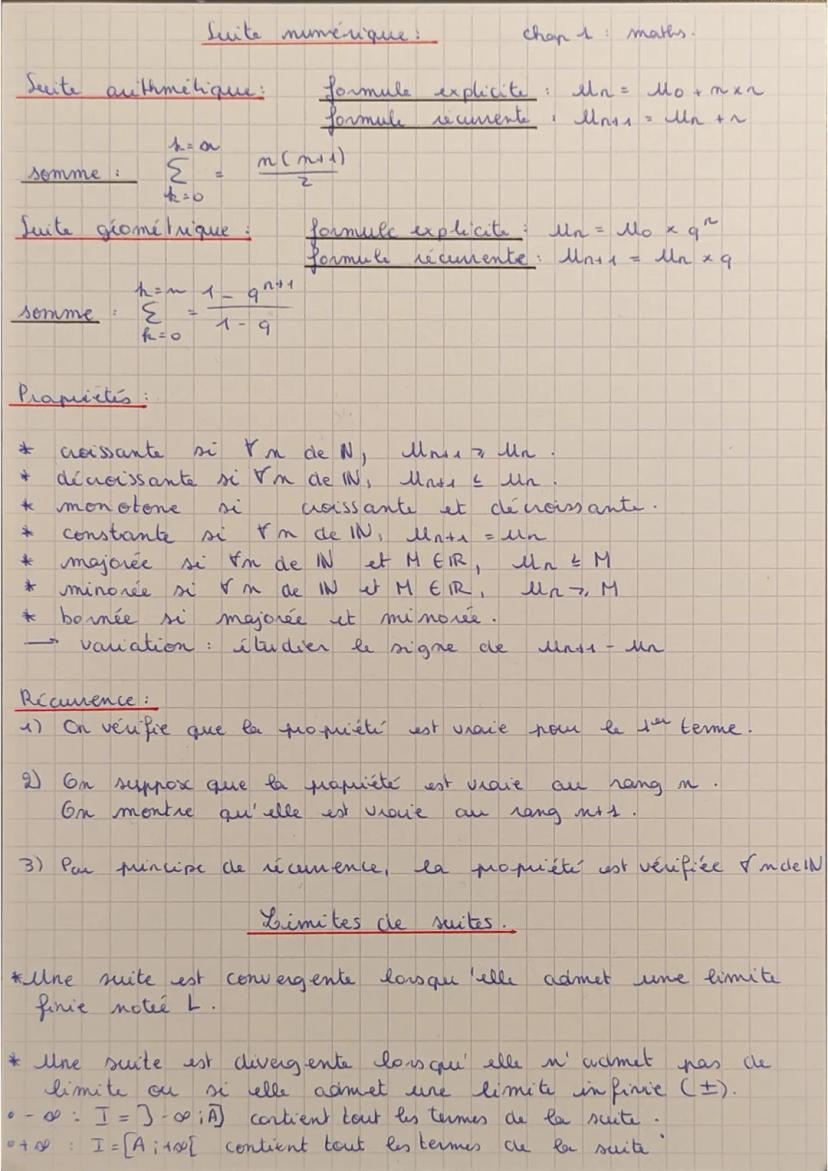 Suite numérique : chap 1 : maths.
Suite arithmétique : formule explicite : Un = U0 + n x r
formule récurrente : Un+1 = Un + r
k=n
somme : Σ = n(n+1)
k=0 2
Suite géométrique : formule explicite : Un = U0 x qⁿ
formule récurrente : Un+1 = Un x q
k=n 1 - qⁿ⁺¹
somme : Σ =
k=0 1 - q
Propriétés :
* croissante si ∀ n de ℕ, Un+1 ⩾ Un .
* décroissante si ∀n de ℕ, Un+1 ≤ Un .
* monotone si croissante et décroissante.
* constante si ∀ n de ℕ, Un+1 = Un
* majorée si ∀n de ℕ et M ∈ ℝ, Un ≤ M
* minorée si ∀ n de ℕ et M ∈ ℝ, Un ⩾ M
* bornée si majorée et minorée.
→ variation : étudier le signe de Un+1 - Un
Récurrence :
1) On vérifie que la propriété est vraie pour le 1er terme.
2) On suppose que la propriété est vraie au rang n .
On montre qu'elle est vraie au rang n+1 .
3) Par principe de récurrence, la propriété est vérifiée ∀ n de ℕ
Limites de suites.
* Une suite est convergente lorsqu'elle admet une limite
finie notée L .
* Une suite est divergente lorsqu'elle n'admet pas de
limite ou si elle admet une limite infinie (±).
• -∞ : I = ]-∞ ; A] contient tout les termes de la suite .
• +∞ : I = [A ; +∞[ contient tout les termes de la suite .